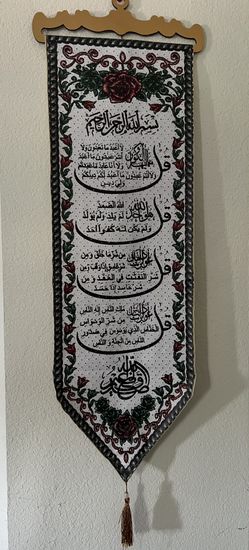 بسم الله الرحمن الرحيم
قل يا ايها الكفرون
لا اعبد ما تعبدون ولا
انتم عبدون ما اعبد
ولا انا عابد ما عبدتم
ولا انتم عبدون ما اعبد لكم دينكم
ولي دين
قل هو الله احد
الله الصمد
لم يلد ولم يولد
ولم يكن له كفوا احد
قل اعوذ برب الفلق
من شر ما خلق و من
شر غاسق اذا وقب و من
شر النفثت في العقد و من
شر حاسد اذا حسد
قل اعوذ برب الناس
ملك الناس اله الناس
من شر الوسواس
الخناس الذي يوسوس في صدور
الناس من الجنة و الناس